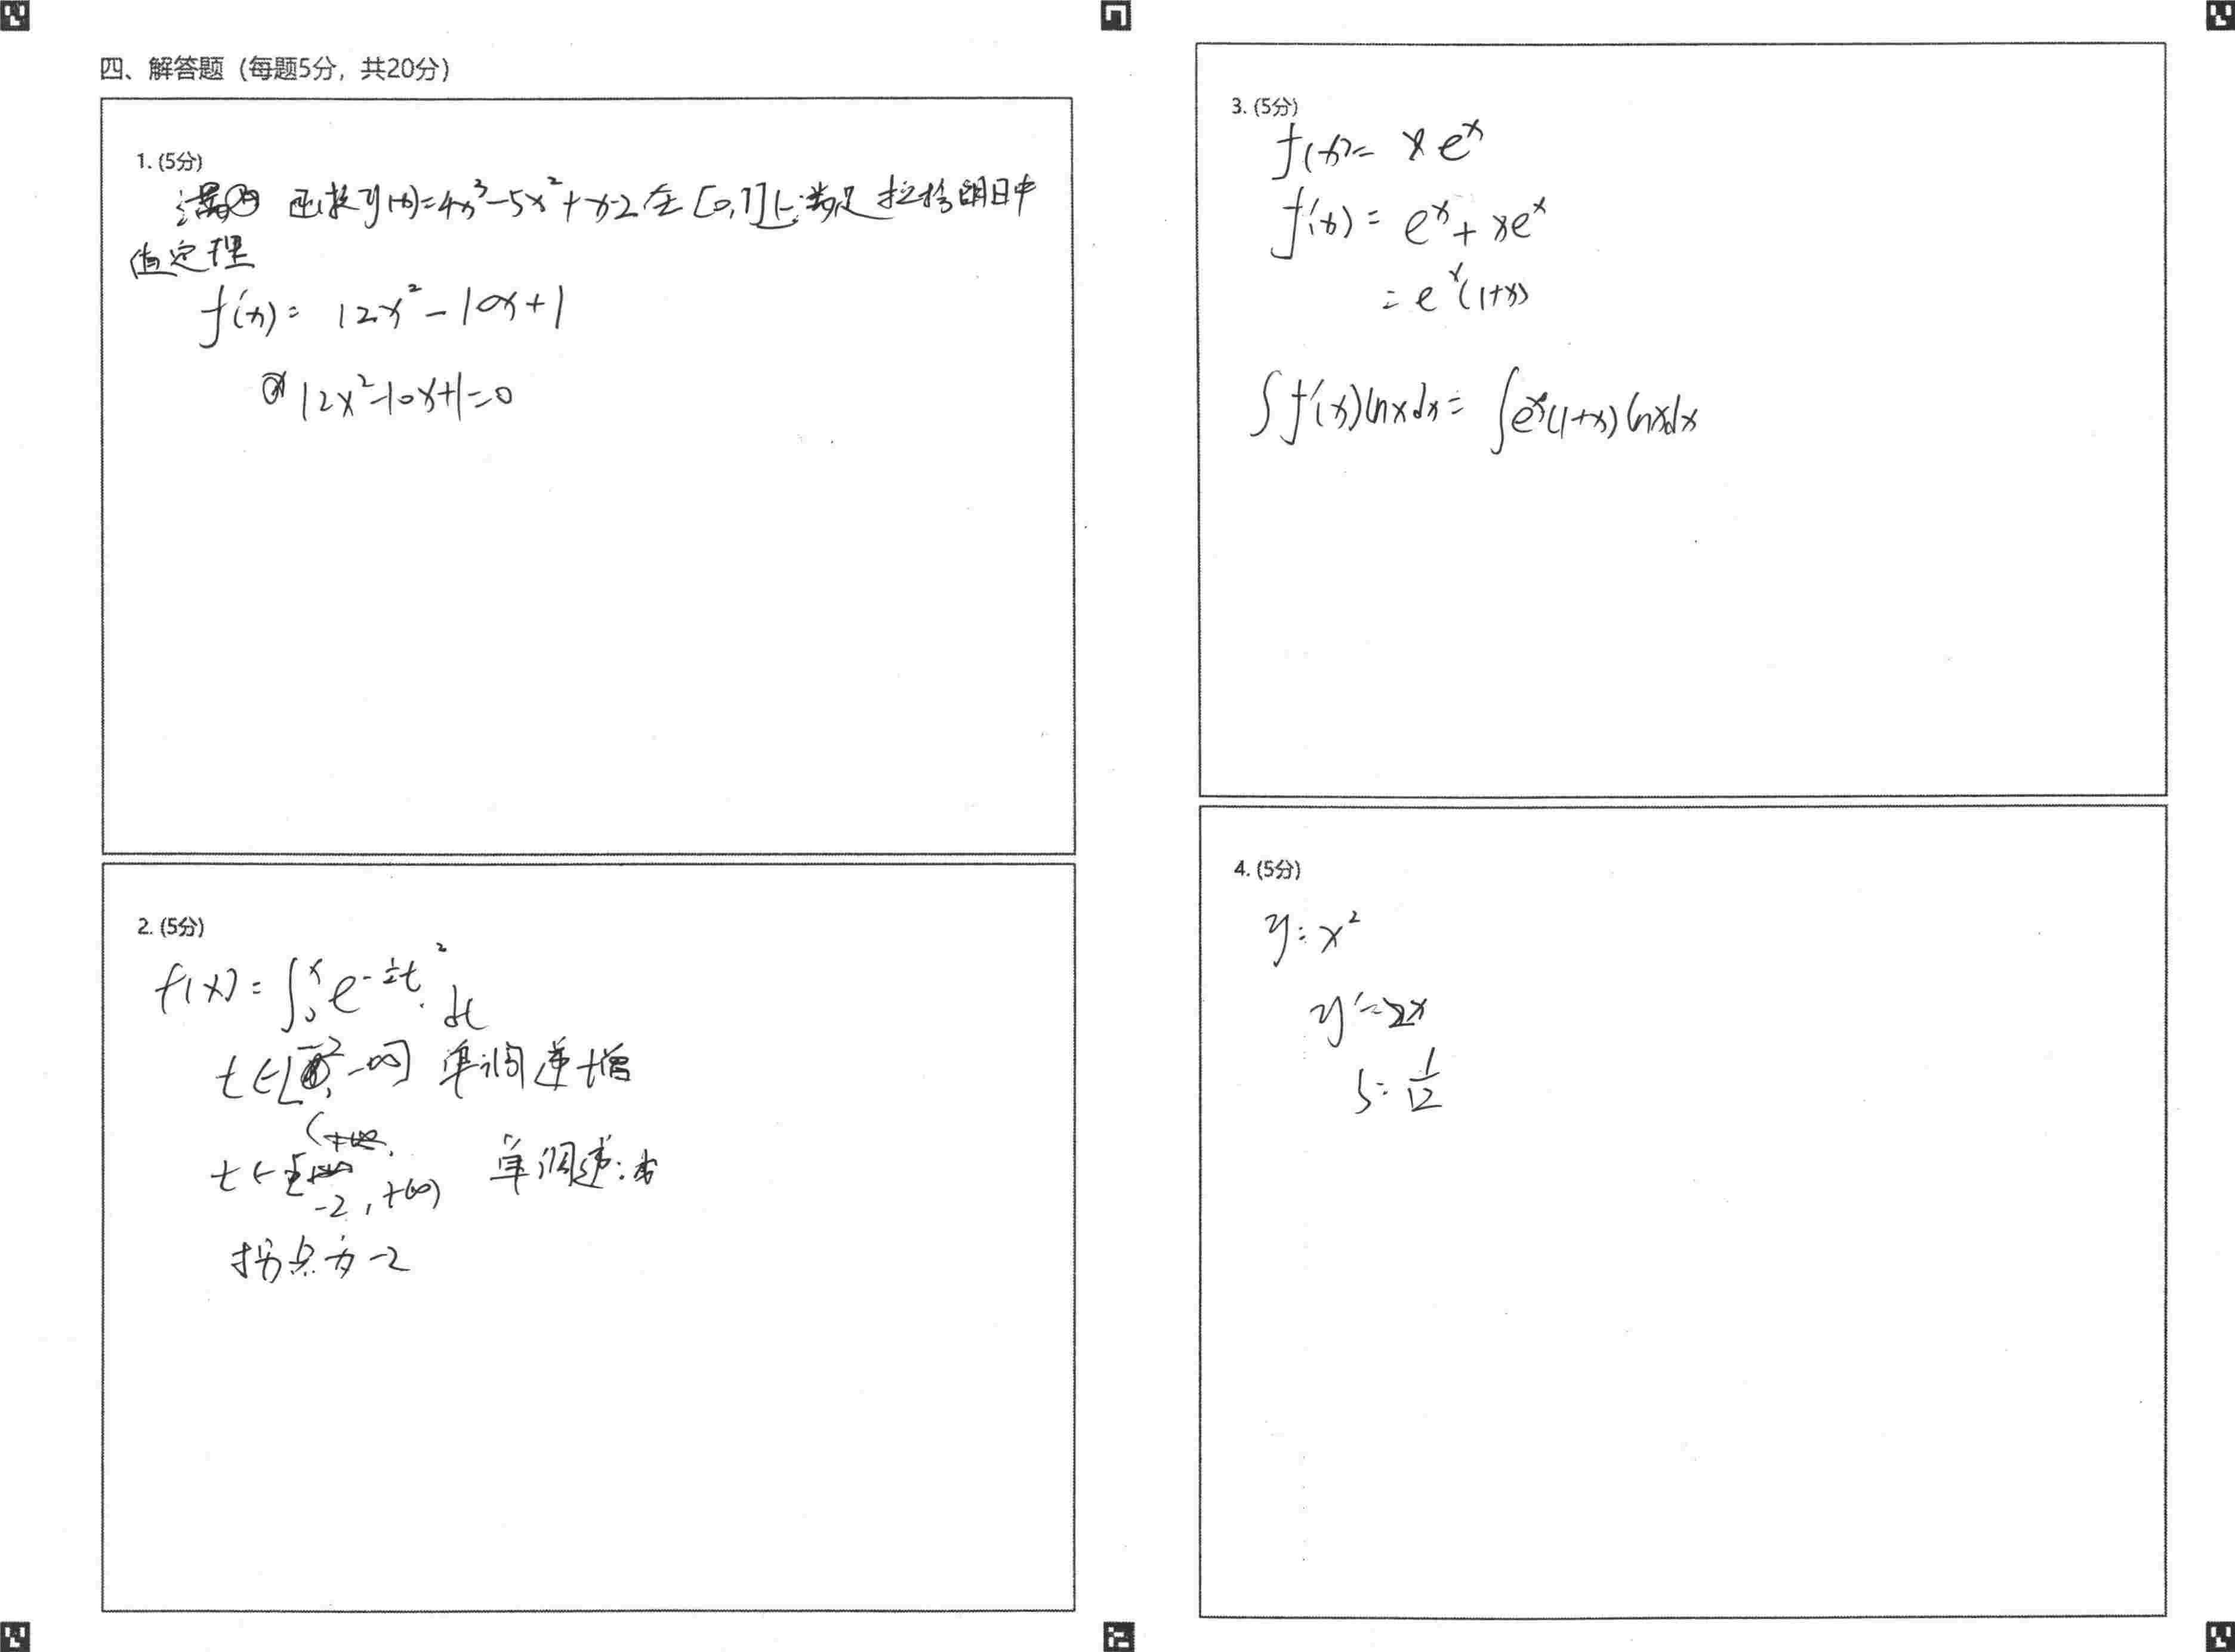 四、解答题（每题5分，共20分）
1. (5分)
函数y(x)=4x³-5x²+x-2在[0,1]上满足拉格朗日中
值定理
f'(x)= 12x²-10x+1
12x²-10x+1=0
2. (5分)
f(x)=∫₀ˣ e^{-½t²} dt
单调递增
t∈[-2, +∞) 单调递减
拐点为-2
3. (5分)
f(x)= x eˣ
f'(x)= eˣ+xeˣ
= eˣ(1+x)
∫f'(x)lnxdx= ∫eˣ(1+x)lnxdx
4. (5分)
y=x²
y'=2x
S=1/12